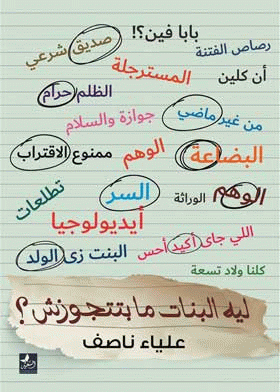 بابا فين؟!
صديق شرعي
رصاص الفتنة
المسترجلة
أن كلين
الظلم حرام
من غير ماضي
جوازة والسلام
الوهم
ممنوع الاقتراب
البضاعة
تطلعات
السر
الوراثة
الوهم
أيديولوجيا
اللي جاى أكيد أحس
البنت زى الولد
كلنا ولاد تسعة
ليه البنات ما بتتجوزش؟
علياء ناصف